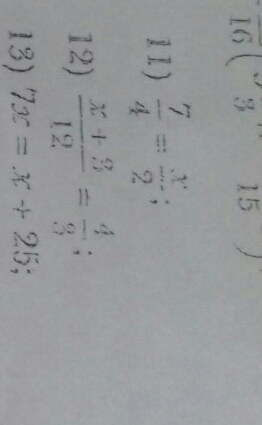 16 ( 3 15 )
11) 7/4 = x/2;
12) x + 3/12 = 4/3;
13) 7x = x + 25;